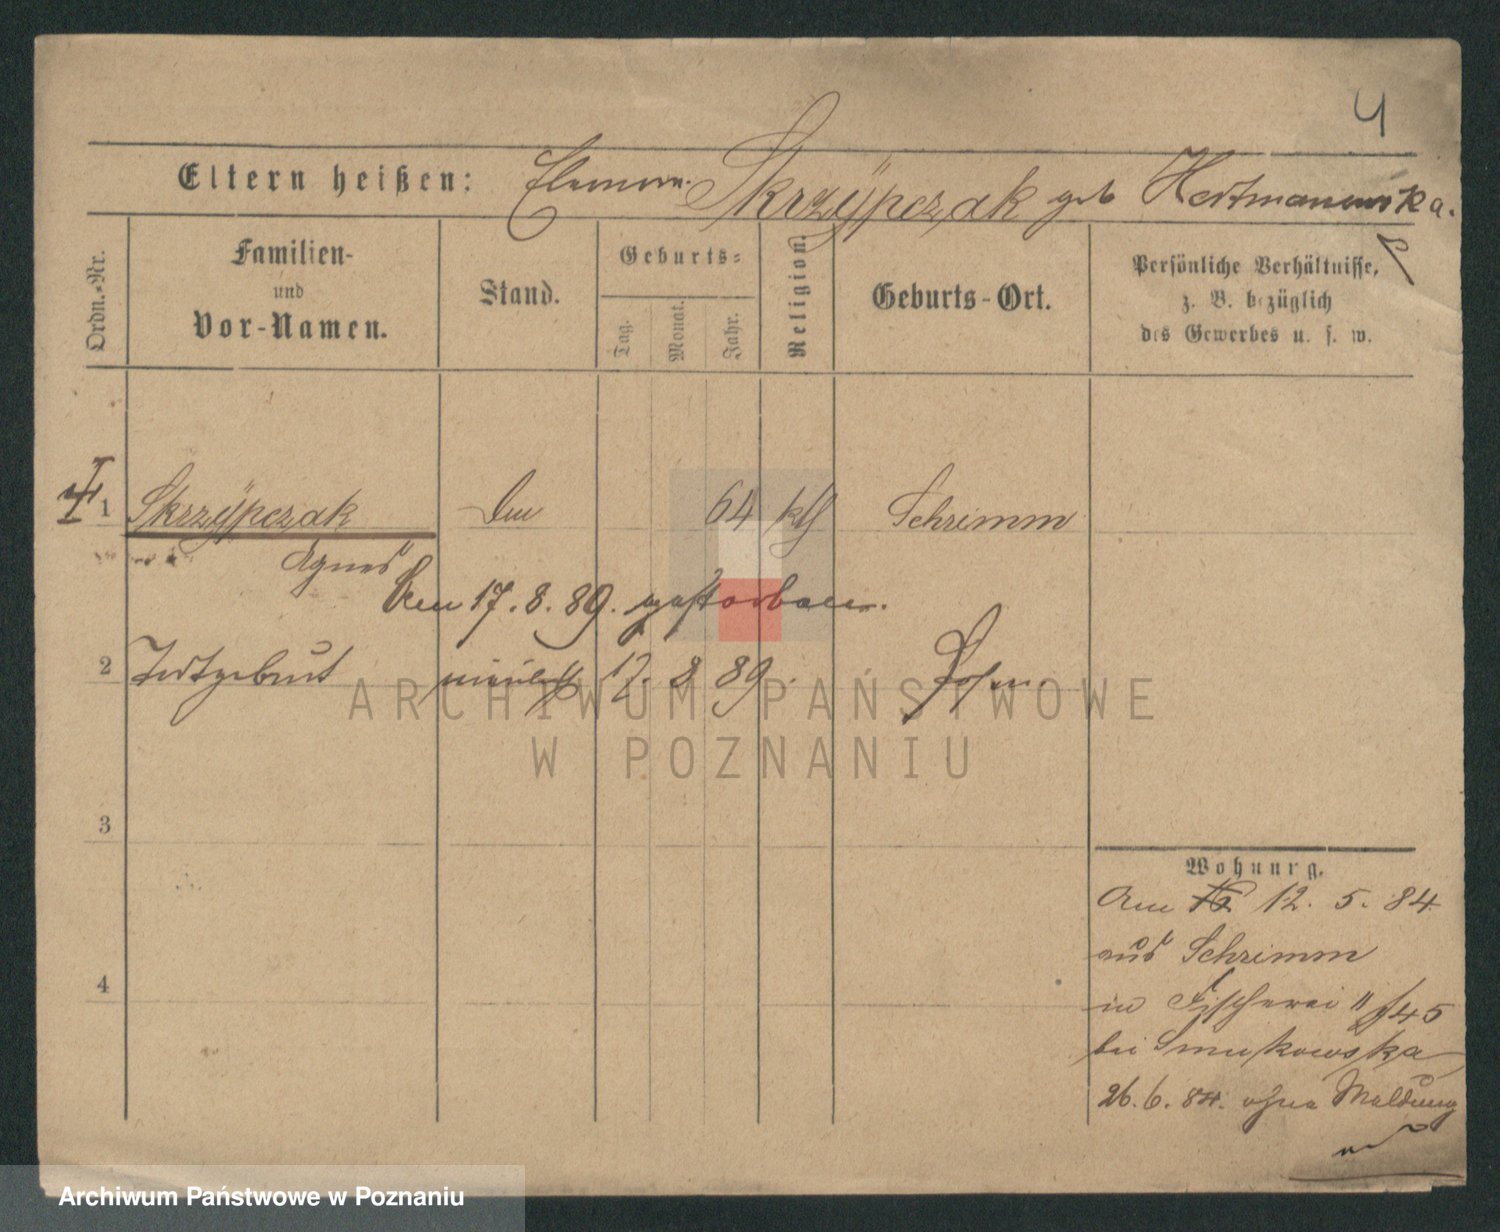 4
Eltern heißen: Skrzÿpczak geb Hartmanowska.
Ordn.-Nr.
Familien-
und
Vor-Namen.
Stand.
Geburts-
Tag.
Monat.
Jahr.
Religion.
Geburts-Ort.
Persönliche Verhältnisse,
z. B. bezüglich
des Gewerbes u. s. w.
1 Skrzÿpczak 64 kth Schrimm
Agnes
Am 17. 8. 89. gestorben.
2 Todtgeburt männlich 17. 8 89. Posen.
3
4
Wohnung.
Am 12. 5. 84
aus Schrimm
in Fischerei 11 f 45
bei Smukowska
26. 6. 84. ohne Meldung
ARCHIWUM PAŃSTWOWE
W POZNANIU
Archiwum Państwowe w Poznaniu